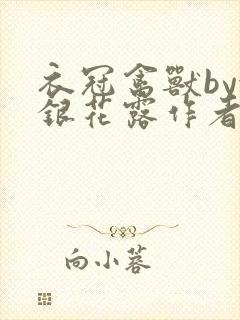 衣冠禽獸by
銀花露作者
向小蓉